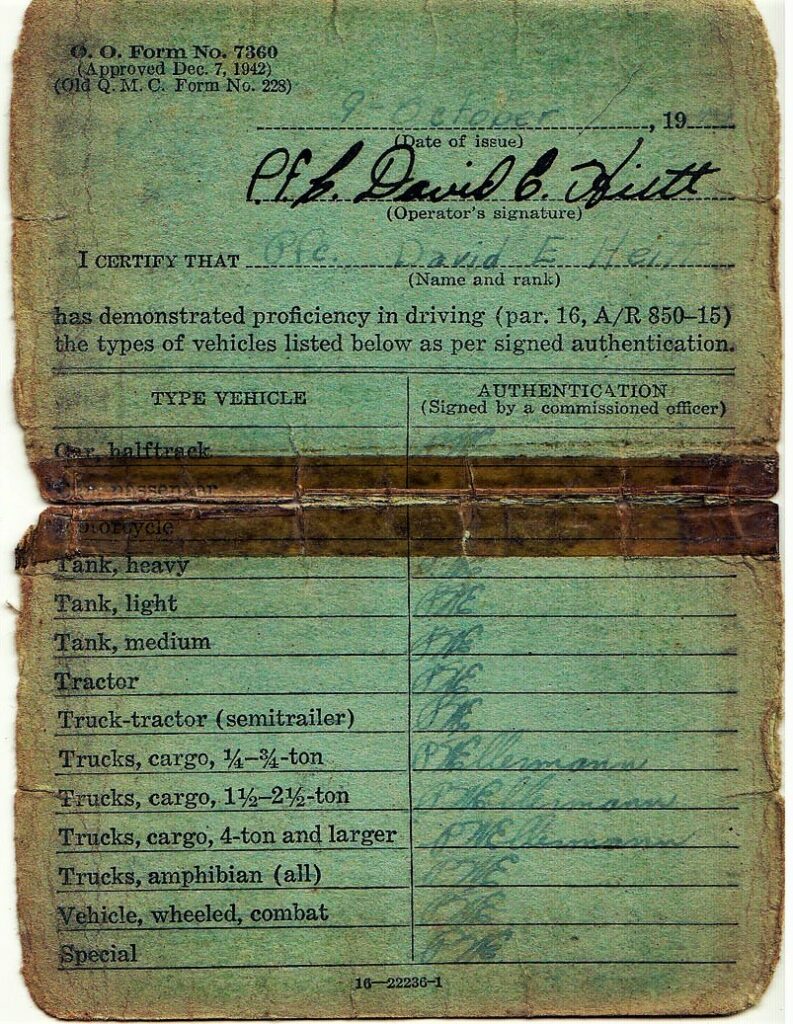 O. O. Form No. 7360
(Approved Dec. 7, 1942)
(Old Q. M. C. Form No. 228)
9 October, 19
(Date of issue)
Pfc. David E. Hiett
(Operator's signature)
I CERTIFY THAT Pfc. David E
(Name and rank)
has demonstrated proficiency in driving (par. 16, A/R 850–15)
the types of vehicles listed below as per signed authentication.
TYPE VEHICLE AUTHENTICATION
(Signed by a commissioned officer)
Car, halftrack
passenger
Motorcycle
Tank, heavy
Tank, light PWE
Tank, medium PWE
Tractor PWE
Truck-tractor (semitrailer) PWE
Trucks, cargo, ¼–¾-ton PWEllermann
Trucks, cargo, 1½–2½-ton PWEllermann
Trucks, cargo, 4-ton and larger PWEllermann
Trucks, amphibian (all) PWE
Vehicle, wheeled, combat PWE
Special PWE
16—22236-1